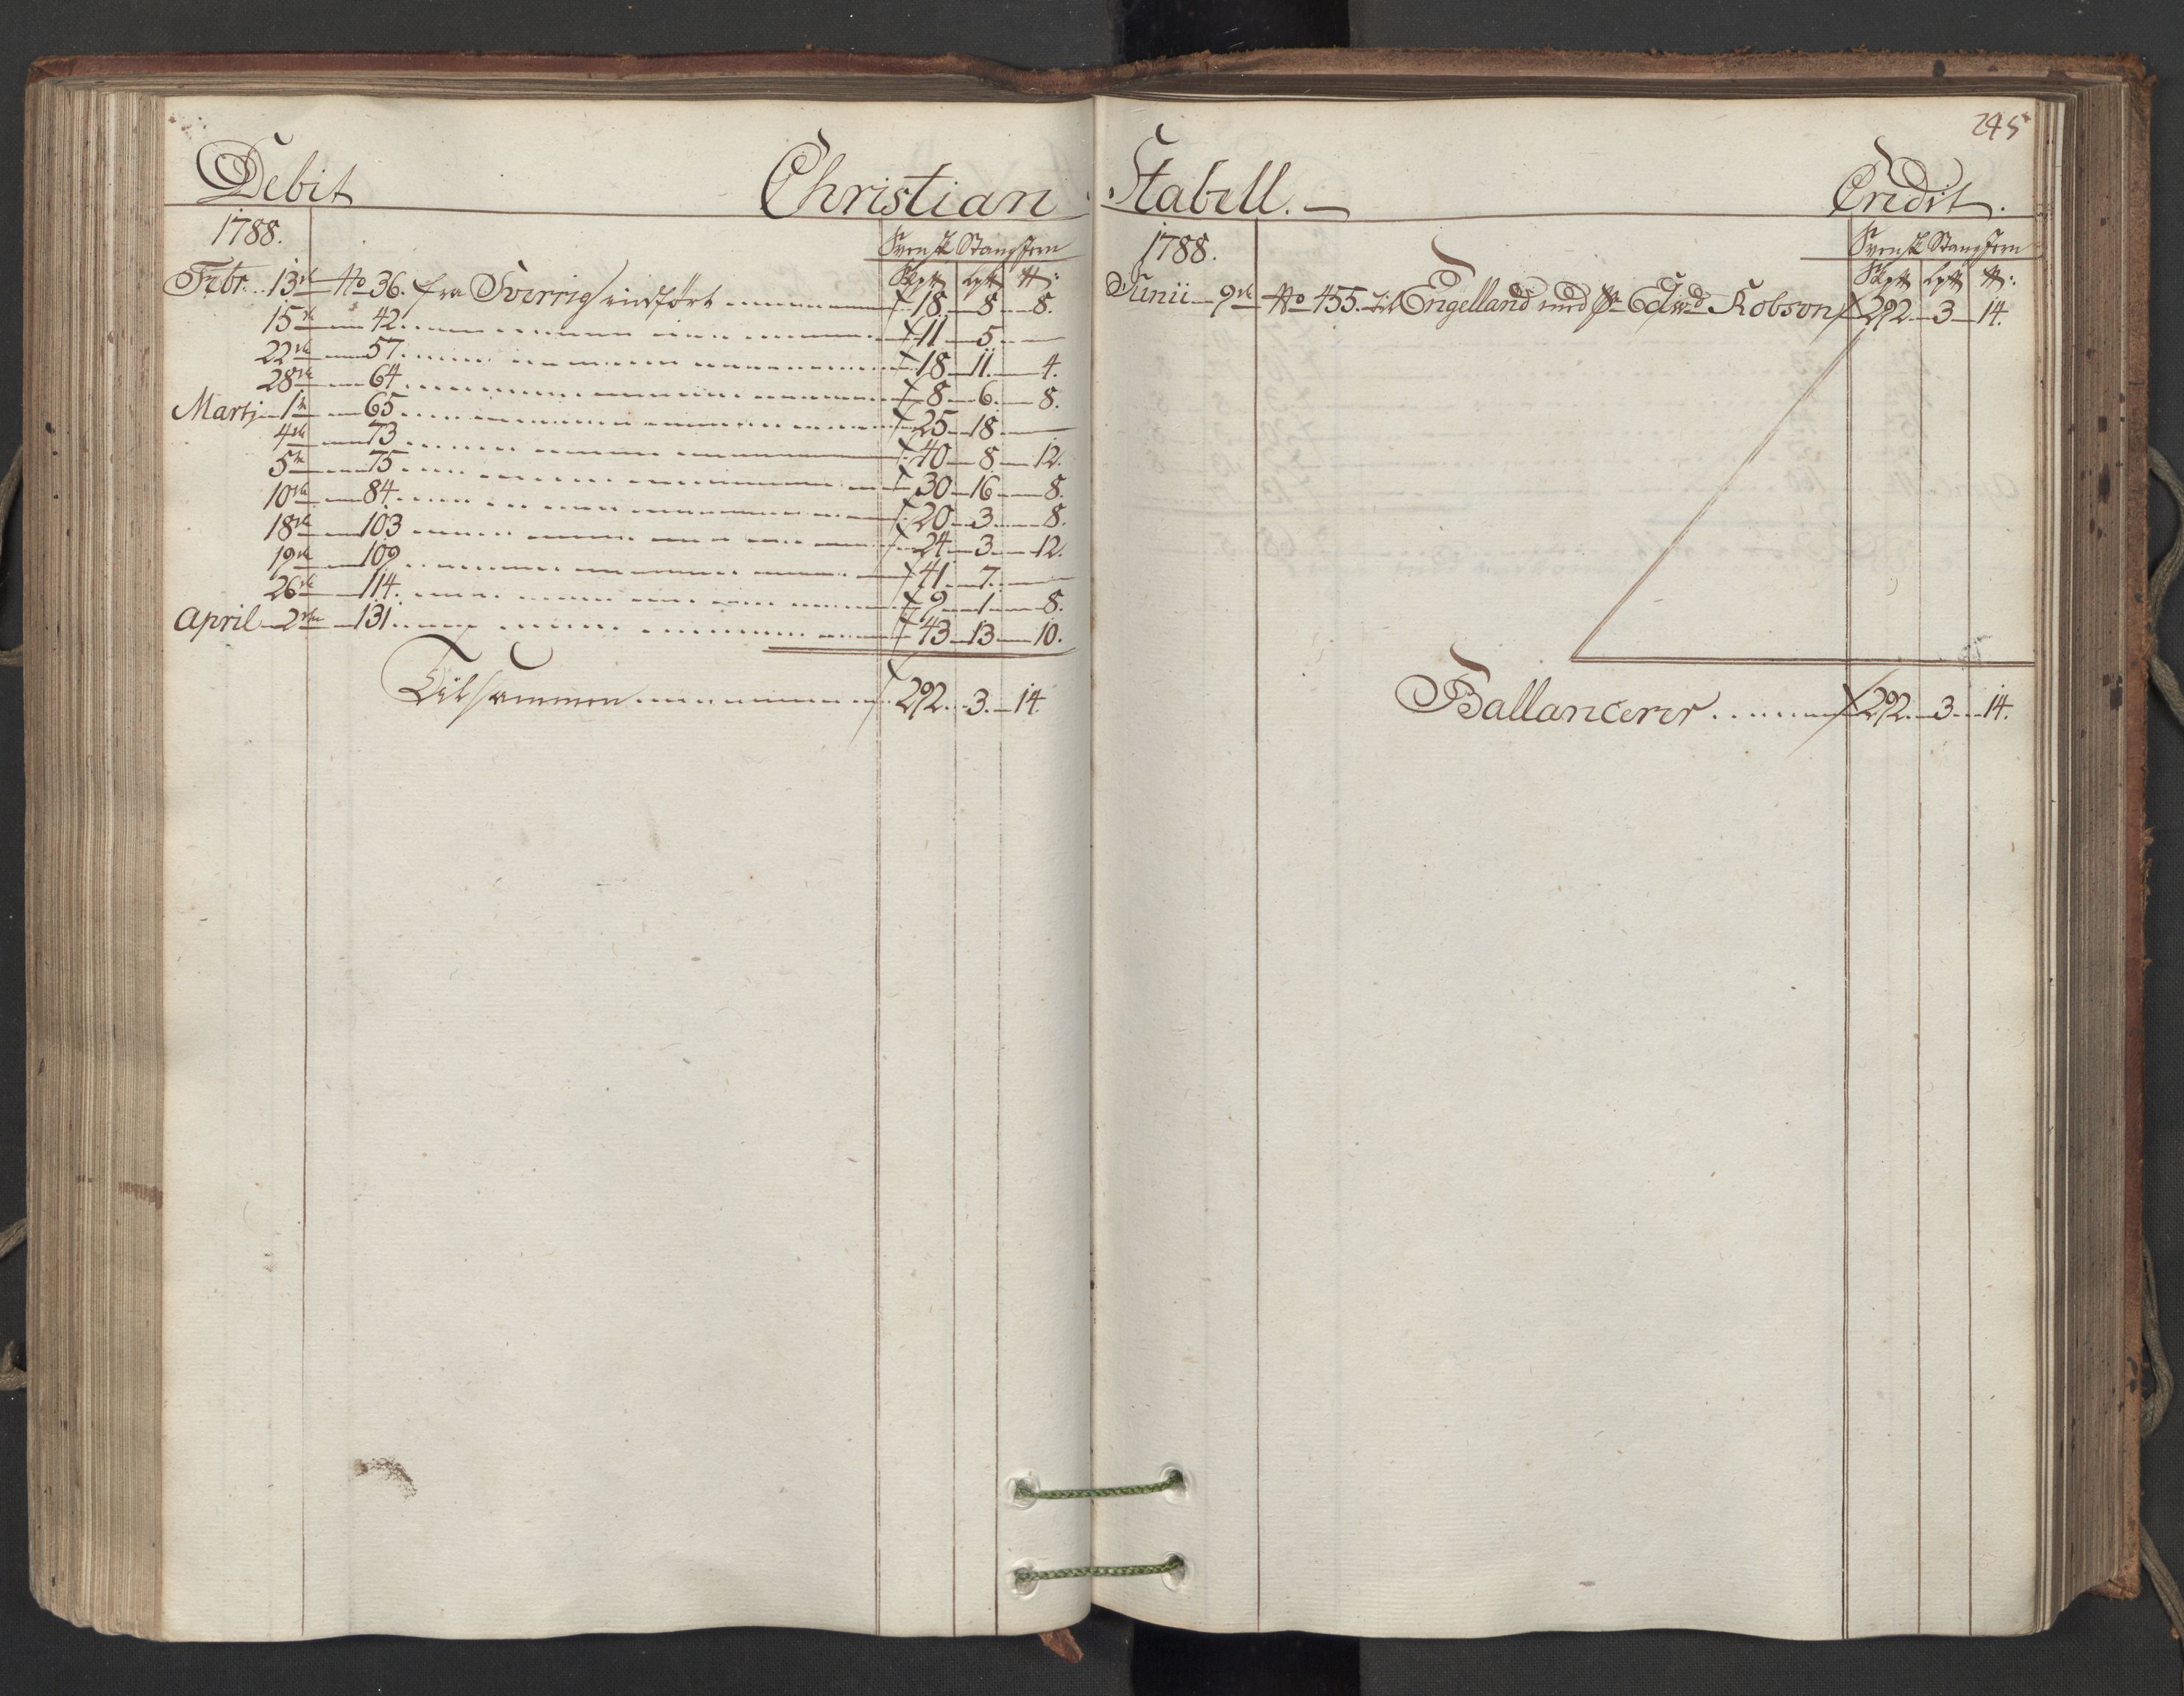 245
Debit Christian Stabell. Credit.
1788.
Svensk Stang Jern
Skp℔ Lp℔ ℔:
Febr. 13de No 36. fra Sverrig indført 18 8 8.
15de 42. 11 5
22de 57. 18 11 4.
28de 64 8 6 8.
Martj 1te 65 25 18
4de 73 40 8 12.
5te 75 30 16 8.
10de 84 20 3 8.
18de 103 24 3 12.
19de 109 41 7
26de 114. 9 1 8.
April 2den 131. 43 13 10.
Tilsammen 292 3 14.
1788.
Svensk Stang Jern
Skp℔ Lp℔ ℔:
Junii 9de No 455. til Engelland med Edwd Robson 292 3 14.
Ballancerer 292 3 14.